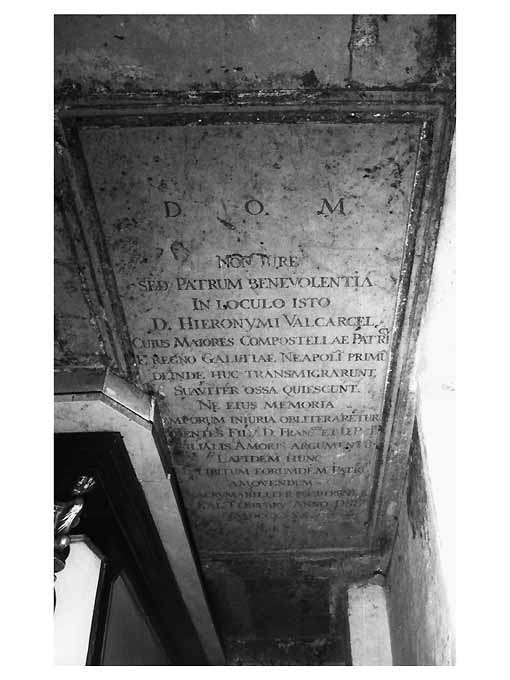 D. O. M
NON JURE
SED PATRUM BENEVOLENTIA
IN LOCULO ISTO
D. HIERONYMI VALCARCEL
CUIUS MAIORES COMPOSTELLAE PATRI
E REGNO GALITIAE NEAPOLI PRIMU
DEINDE HUC TRANSMIGRARUNT,
SUAVITER OSSA QUIESCUNT.
NE EIUS MEMORIA
INIURIA OBLITERARETUR
FIL D. FRANC ET
AMORIS ARGUMENTU
LAPIDEM HUNC
LIBITUM EORUMDEM PATRU
AMOVENDUM
ANNO